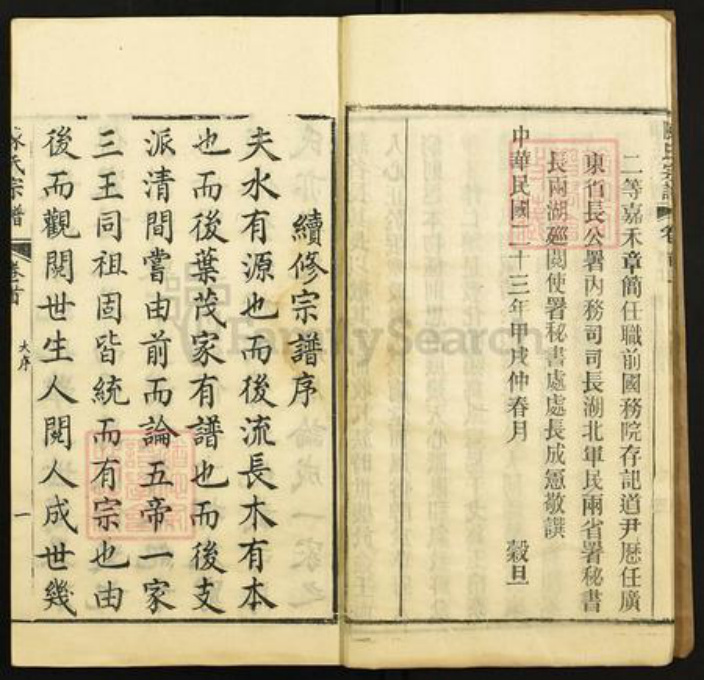 二等嘉禾章簡任職前國務院存記道尹歷任廣
東省長公署內務司司長湖北軍民兩省署秘書
長兩湖廵閱使署秘書處處長成憲敬譔
中華民國二十三年甲戌仲春月　　穀旦
續修宗譜序
夫水有源也而後流長木有本
也而後葉茂家有譜也而後支
派清間嘗由前而論五帝一家
三王同祖固皆統而有宗也由
後而觀閱世生人閱人成世幾
氏宗譜
卷首
大序
一
FamilySearch